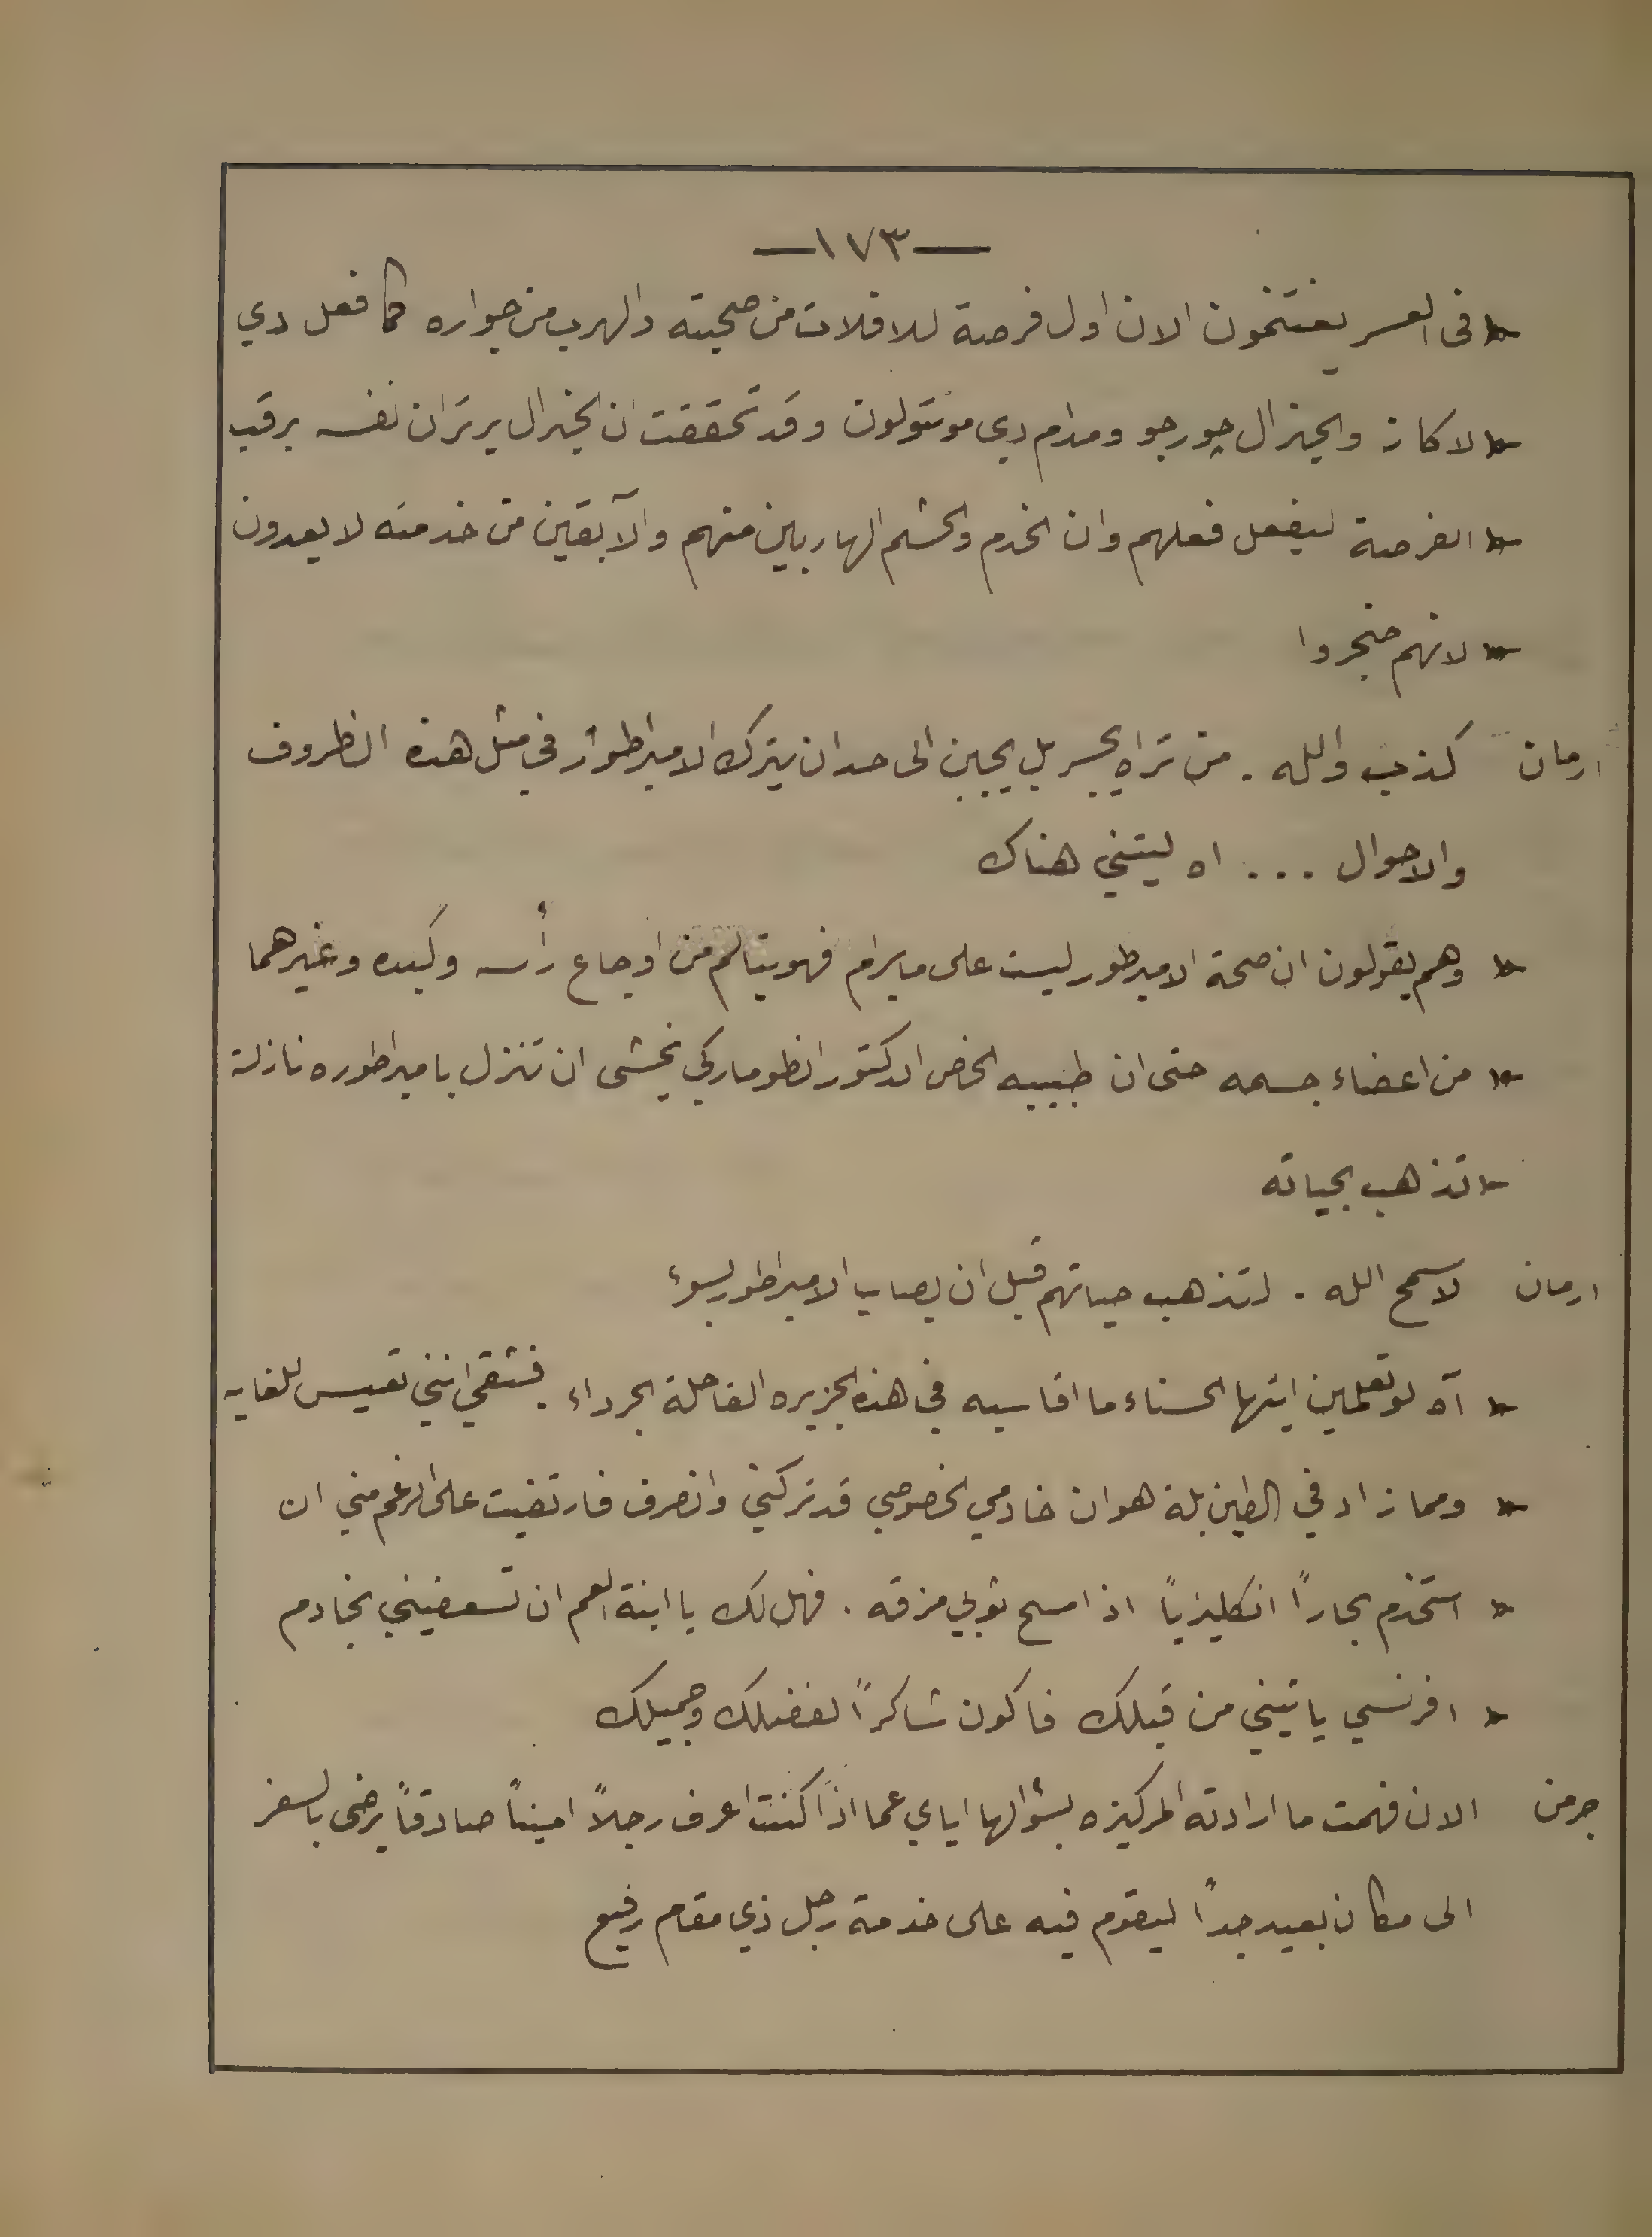 —١٧٣—
» فى العسر يغتنمون الان اول فرصة للافلات من صحبته والهرب من جواره كما فعل دي
» لاكاز والجنرال جورجو ومدام دي مونتولون وقد تحققت ان الجنرال برتران نفسه يرقب
» الفرصة ليفعل فعلهم وان الخدم والحشم الهاربين منهم والآبقين من خدمته لا يعدون
» لانهم ضجروا
ارمان كذب والله . من تراه يجسر بل يجبن الى حد ان يترك الامبراطور في مثل هذه الظروف
والاحوال ... اه ليتني هناك
» وهم يقولون ان صحة الامبرطور ليست على ما يرام فهو يتالم من اوجاع رأسه وكبده وغيرهما
» من اعضاء جسمه حتى ان طبيبه الخاص الدكتور انطوماركي يخشى ان تنزل بامبراطوره نازلة
» تذهب بحياته
ارمان لا سمح الله . لتذهب حياتهم قبل ان يصاب الامبراطور بسوء
» آه لو تعلمين ايتها الحسناء ما اقاسيه في هذه الجزيره القاحلة الجرداء . فثقي انني تعيس للغايه
» ومما زاد في الطين بلة هو ان خادمي الخصوصي قد تركني وانصرف فارتضيت على الرغم مني ان
» استخدم بحاراً انكليزياً اذا مسح ثوبي مزقه . فهل لك يا ابنة العم ان تسعفيني بخادم
» افرنسي ياتيني من قبلك فاكون شاكراً لفضلك وجميلك
جرمن الان فهمت ما ارادته المركيزه بسؤالها اياي عما اذا كنت اعرف رجلاً اميناً صادقاً يرضى بالسفر
الى مكان بعيد جداً ليقوم فيه على خدمة رجل ذي مقام رفيع